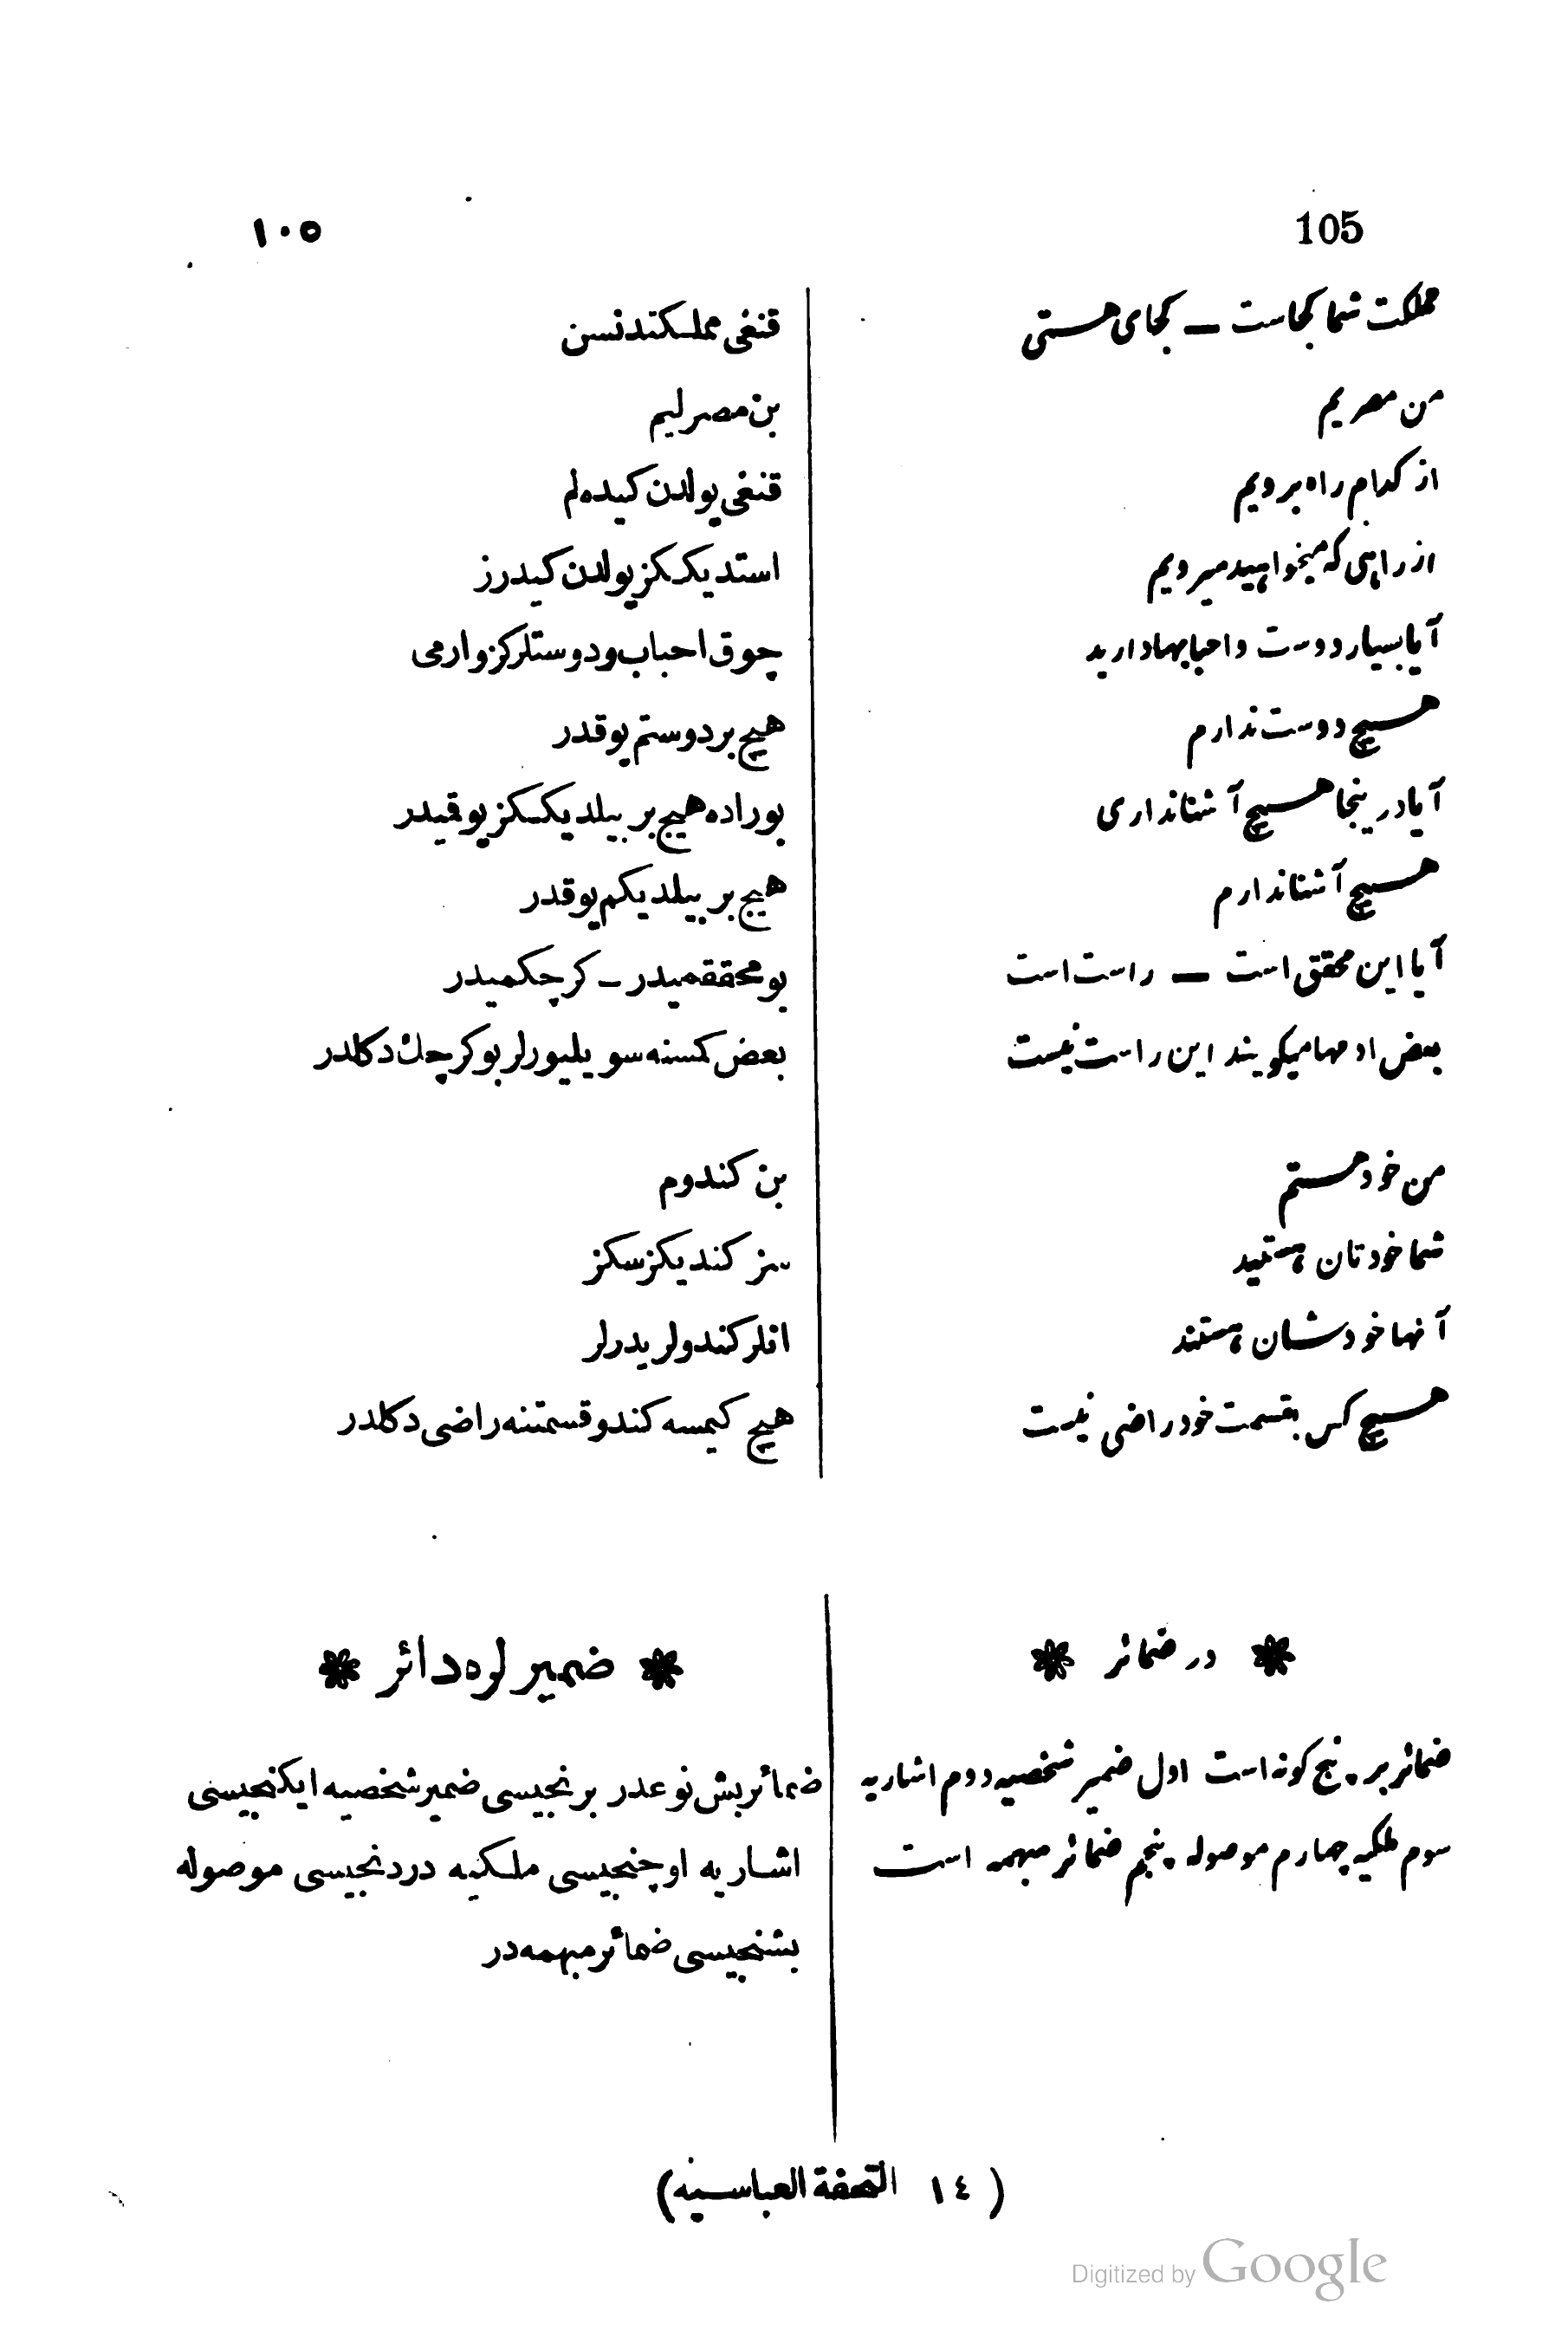 105
١٠٥
مملکت شما کجاست — کجای هستی
من مصریم
از کدام راه برویم
از راهی که میخواهید میرویم
آیا بسیار دوست و احبابها دارید
هیچ دوست ندارم
آیا در ینجا هیچ آشنا نداری
هیچ آشنا ندارم
آیا این محقق است — راست است
بعض ادمها میکویند این راست نیست
من خود هستم
شما خودتان هستید
آنها خودشان هستند
هیچ کس بقسمت خود راضی نیست
قنغی مملکتدنسن
بن مصرلیم
قنغی یولدن کیده لم
استدیککز یولدن کیدرز
چوق احباب و دوستلرکز وارمی
هیچ بر دوستم یوقدر
بوراده هیچ بر بیلدیککز یوقیدر
هیچ بر بیلدیکم یوقدر
بو محققمیدر – کرچکمیدر
بعض کمسنه سویلیورلر بو کرچك دکلدر
بن کندوم
سز کندیکزسکز
انلر کندولریدرلر
هیچ کیمسه کندو قسمتنه راضی دکلدر
❋ در ضمائر ❋
ضمائر بر پنج کونه است اول ضمیر شخصیه دوم اشاریه
سوم ملکیه چهارم موصوله پنجم ضمائر مبهمه است
❋ ضمیرلره دائر ❋
ضمائر بش نوعدر برنجیسی ضمیر شخصیه ایکنجیسی
اشاریه اوچنجیسی ملکیه دردنجیسی موصوله
بشنجیسی ضمائر مبهمه در
(١٤ التحفة العباسیه)
Digitized by Google